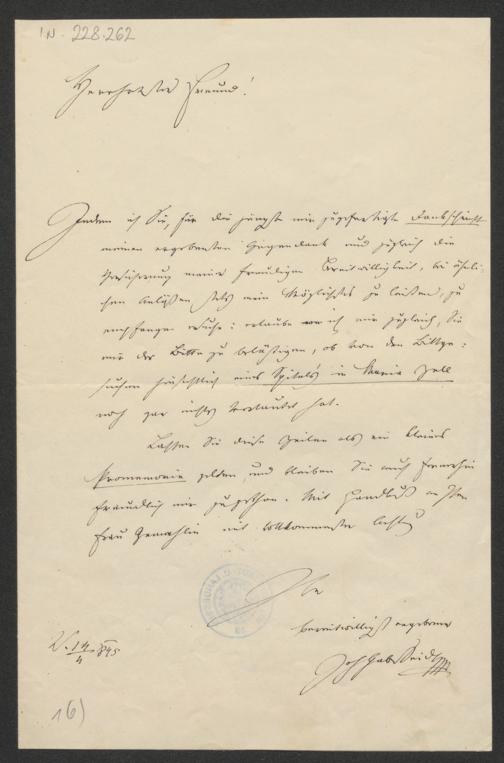 IN. 228.262
Verehrtester Freund!
Indem ich Sie, für die jüngst mir zugefertigte Dankschrift
meinen ergebensten Gegendank und zugleich die
Versicherung meiner freudigen Bereitwilligkeit, bei ähnli-
chen Anlässen stets mein Möglichstes zu leisten, zu
empfangen ersuche: erlaube ich mir zugleich, Sie
mit der Bitte zu belästigen, ob von den Bittge-
suchen hinsichtlich eines Spitals in Maria Zell
noch gar nichts verlautet hat.
Lassen Sie diese Zeilen als ein kleines
Promemoria gelten, und bleiben Sie auch fernerhin
freundlich mir zugethan. Mit Handkuß an Ihre
Frau Gemahlin mit vollkommenster
Ihr
bereitwilligst ergebener
Joh Gab Seidl
16)